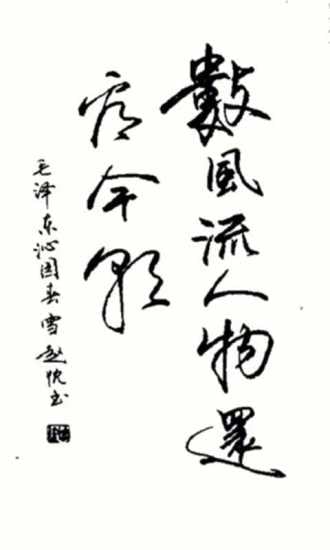 數風流人物還
看今朝
毛泽东沁园春雪赵忱书